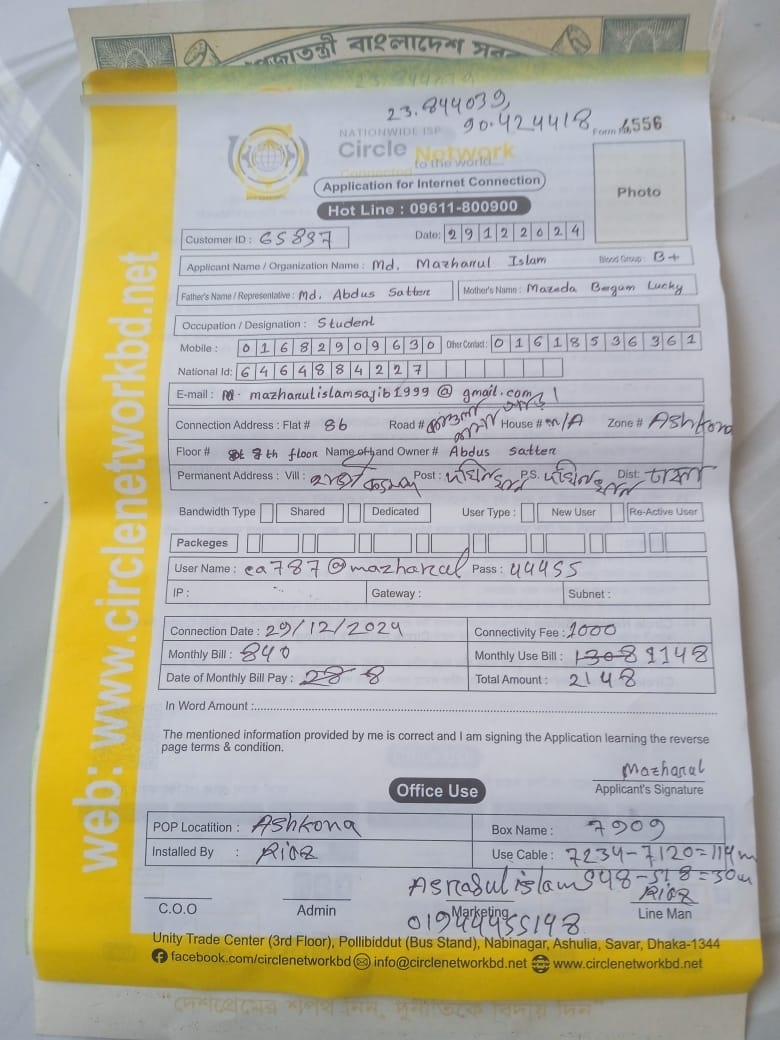 23.844039,
90.424418
NATIONWIDE ISP
Form No. 6556
Circle Network
to the world...
Application for Internet Connection
Photo
Hot Line : 09611-800900
Customer ID : 65897
Date: 29122024
Applicant Name / Organization Name : Md. Mazharul Islam Blood Group : B+
Father's Name / Representative : Md. Abdus Satter Mother's Name : Mazeda Begum Lucky
Occupation / Designation : Student
Mobile : 01682909630 Other Contact : 01618536361
National Id: 6464884227
E-mail : mazharulislamsajib1999@gmail.com
Connection Address : Flat # 8b Road # House # N/A Zone # Ashkona
Floor # 8th floor Name of Land Owner # Abdus Satter
Permanent Address : Vill : Post : P.S. Dist: ঢাকা
Bandwidth Type Shared Dedicated User Type : New User Re-Active User
Packeges
User Name : ca787@mazharul Pass : 44455
IP : Gateway : Subnet :
Connection Date : 29/12/2024 Connectivity Fee : 1000
Monthly Bill : 840 Monthly Use Bill : 1308 1148
Date of Monthly Bill Pay : 28 8 Total Amount : 2148
In Word Amount :
The mentioned information provided by me is correct and I am signing the Application learning the reverse
page terms & condition.
Mazharul
Applicant's Signature
Office Use
POP Locatition : Ashkona Box Name : 7909
Installed By : Riaz Use Cable : 7234-7120=114m
548-518=30m
Asraful islam Riaz
C.O.O Admin Marketing Line Man
01944455148
Unity Trade Center (3rd Floor), Pollibiddut (Bus Stand), Nabinagar, Ashulia, Savar, Dhaka-1344
facebook.com/circlenetworkbd info@circlenetworkbd.net www.circlenetworkbd.net
web: www.circlenetworkbd.net
"দেশপ্রেমের শপথ নিন, দুর্নীতিকে বিদায় দিন"